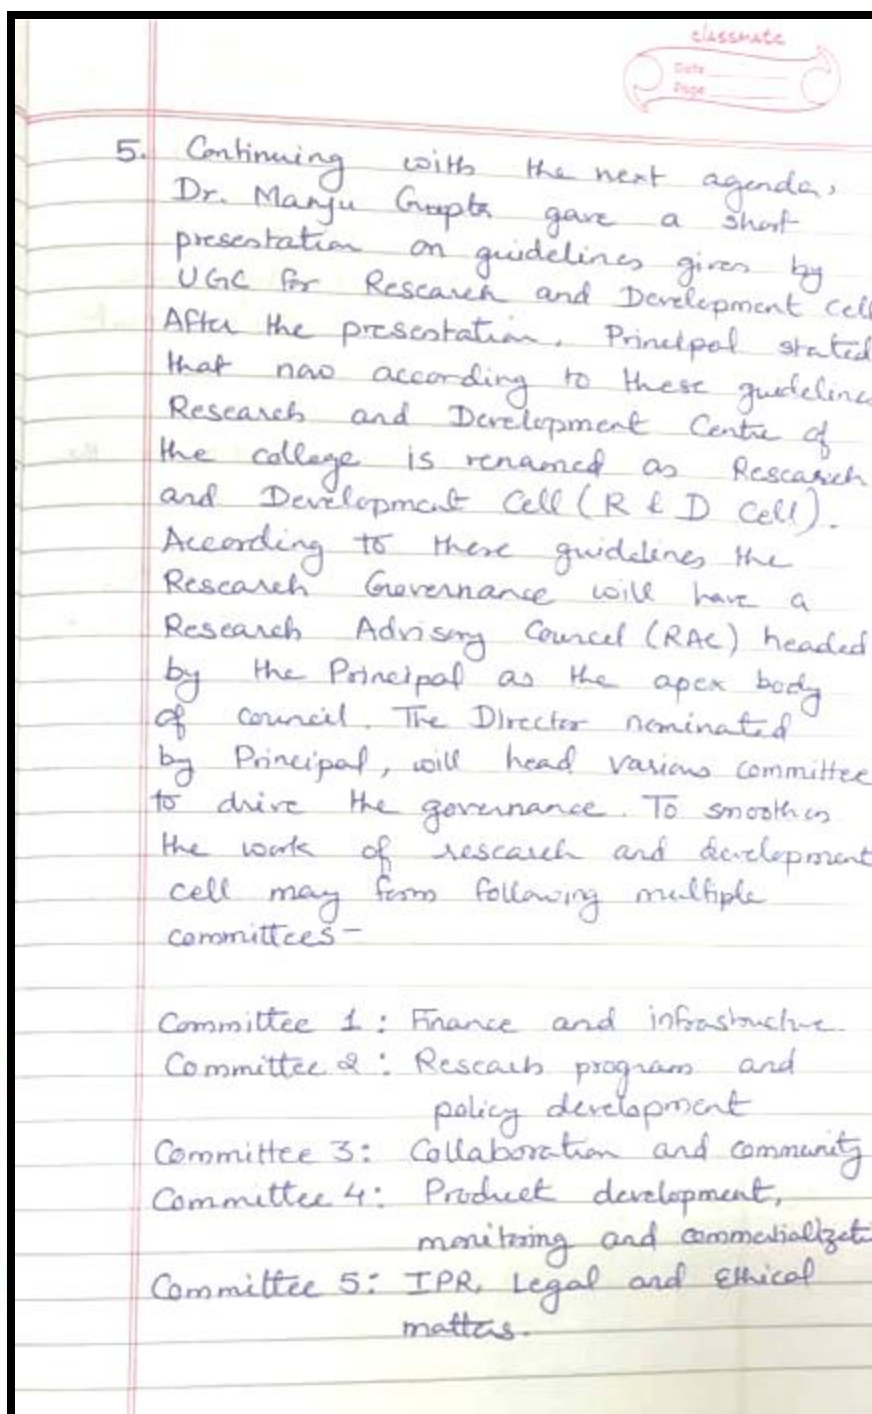 classmate
Date
Page
5. Continuing with the next agenda,
Dr. Manju Gupta gave a short
presentation on guidelines given by
UGC for Research and Development cell
After the presentation, Principal stated
that now according to these guideline
Research and Development Centre of
the college is renamed as Research
and Development Cell (R & D Cell).
According to these guidelines the
Research Governance will have a
Research Advisory Councel (RAC) headed
by the Principal as the apex body
of council. The Director nominated
by Principal, will head various committee
to drive the governance. To smoothen
the work of research and development
cell may form following multiple
committees-
Committee 1 : Finance and infrastructure.
Committee 2 : Research program and
policy development
Committee 3: Collaboration and community
Committee 4: Product development,
monitoring and commertializati
Committee 5: IPR, Legal and Ethical
matters.